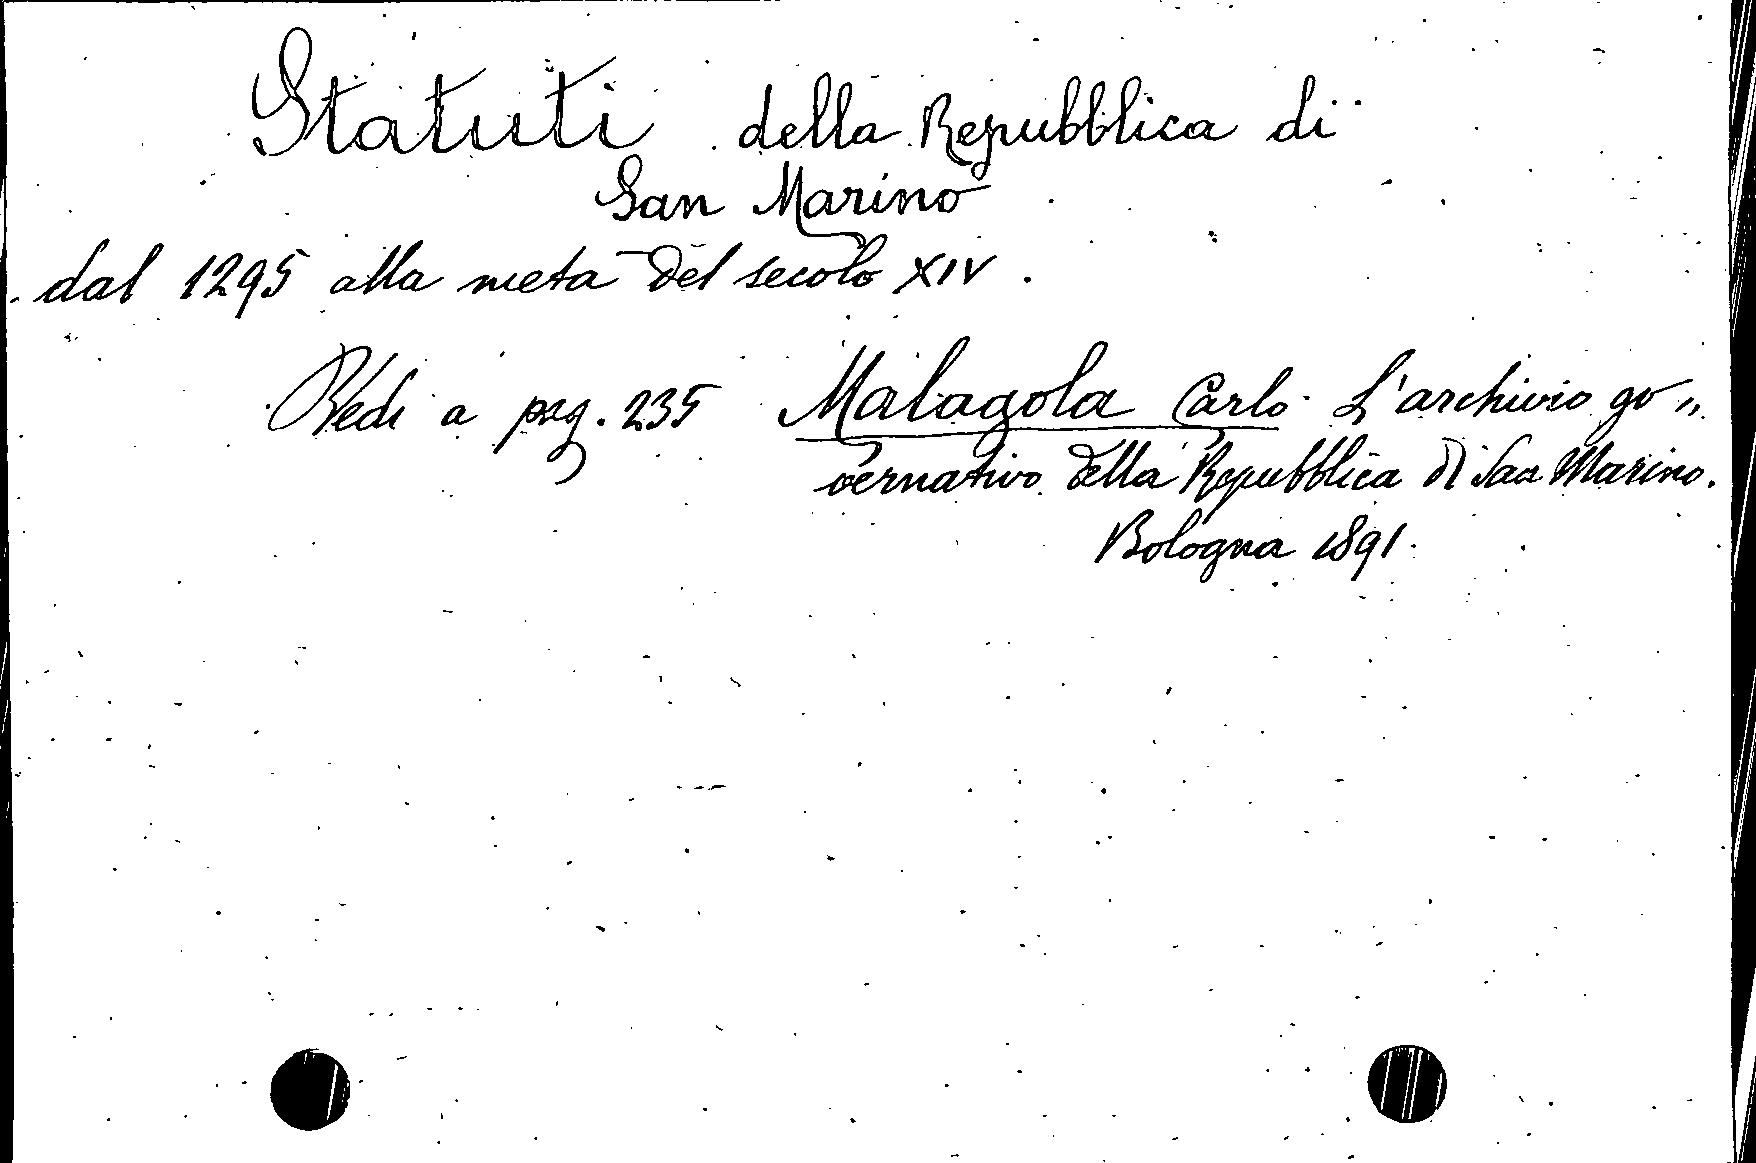 Statuti della Repubblica di
San Marino
dal 1295 alla metà del secolo XIV.
Vedi a pag. 235 Malagola Carlo L'archivio go„
vernativo della Repubblica di San Marino.
Bologna 1891.